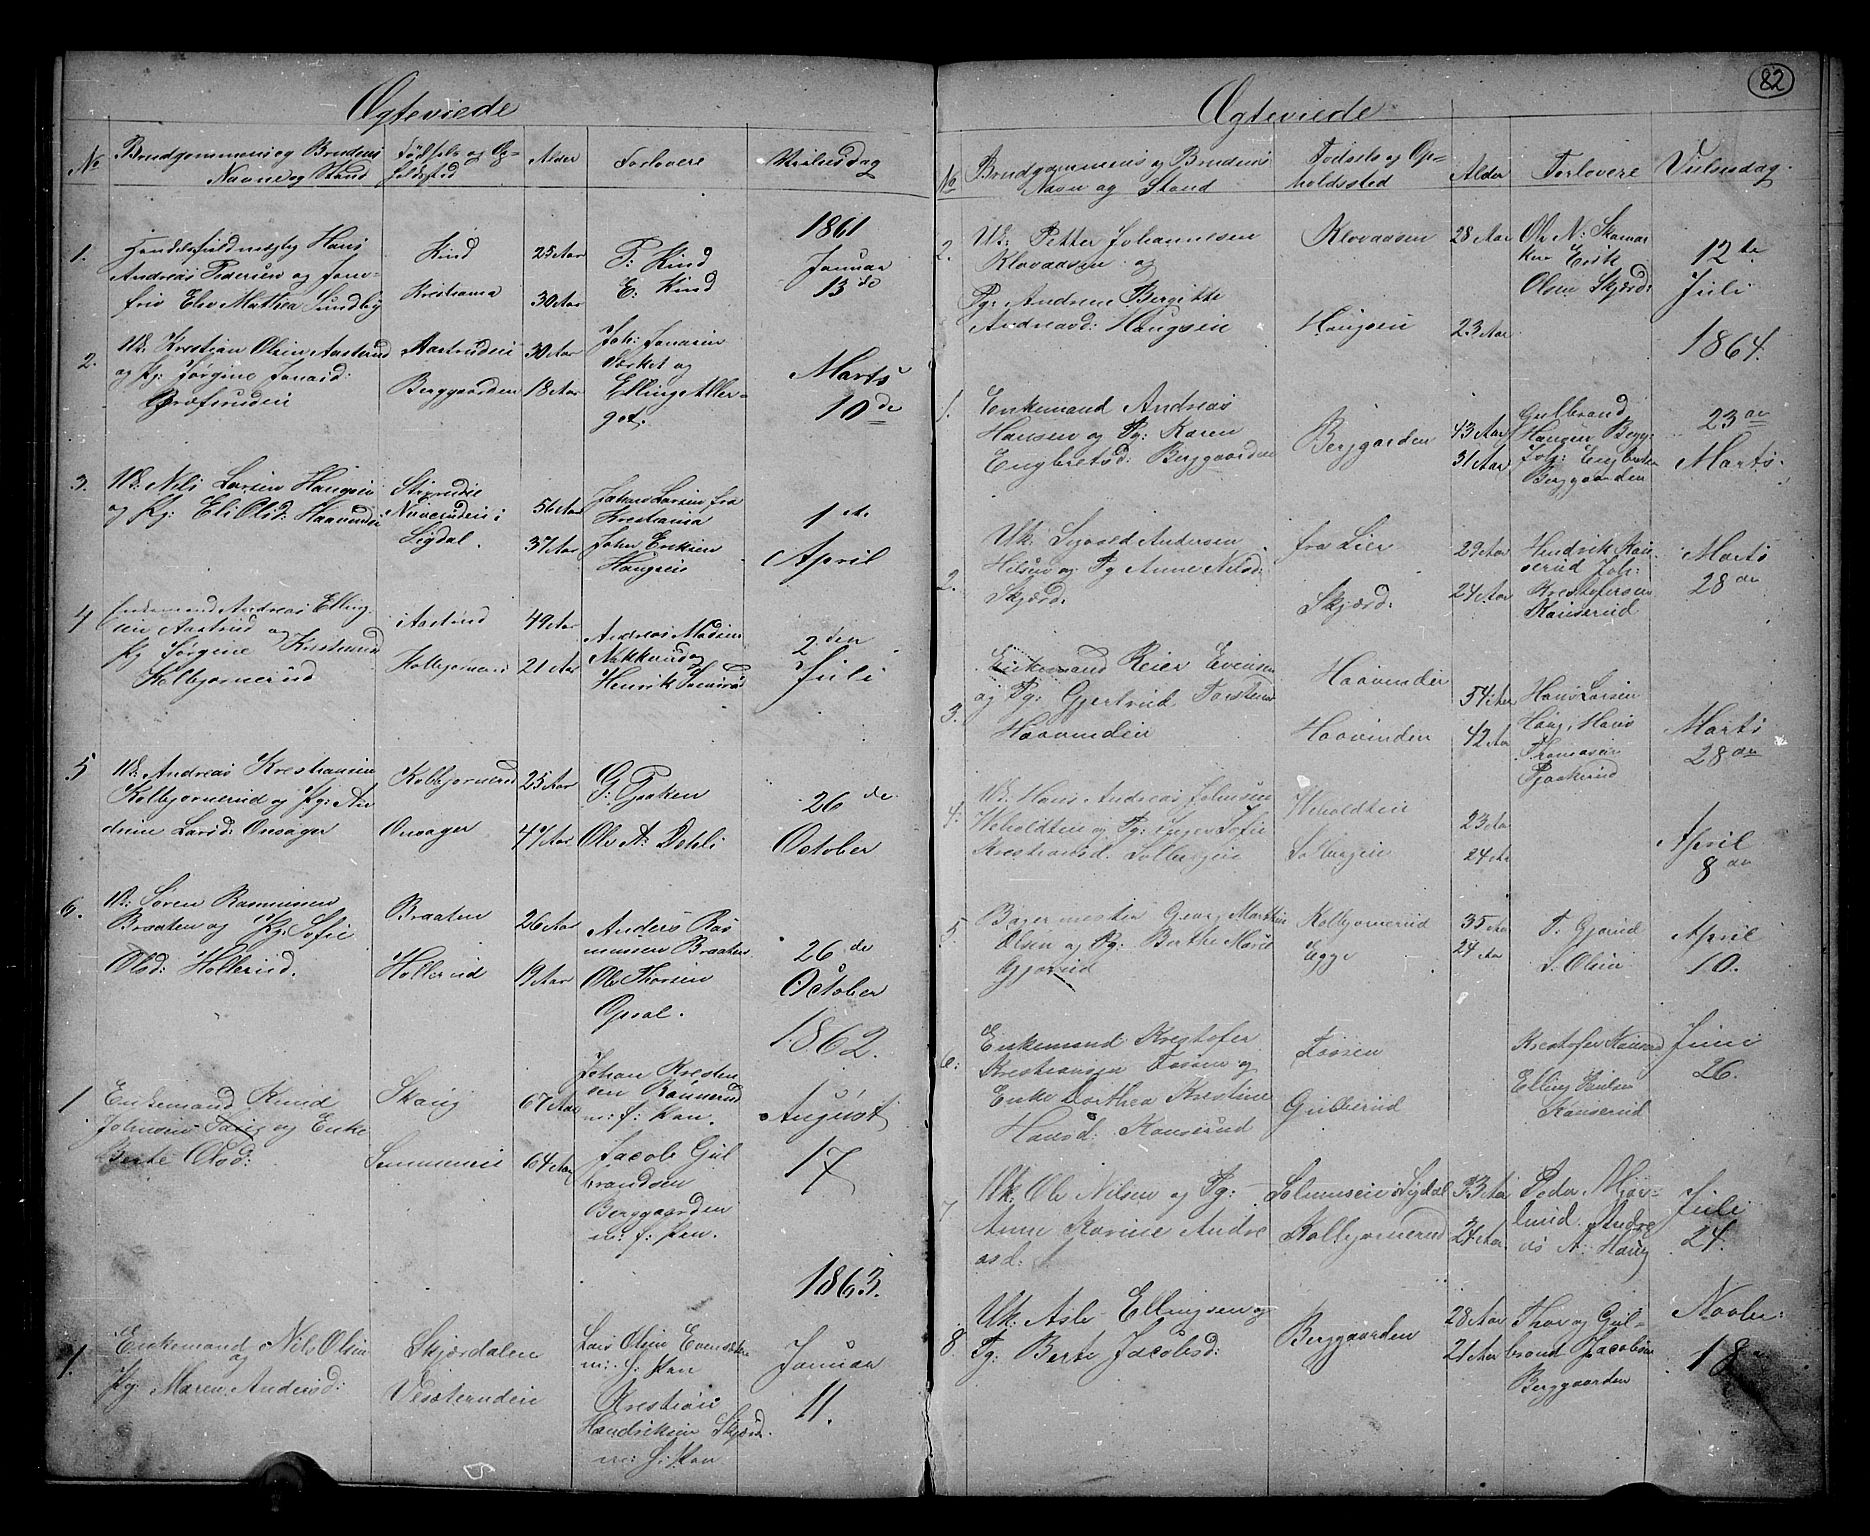 82
Ægteviede
No
Brudgommens og Brudens
Navne og Stand
Fødsels og Op-
holdsted
Alder
Forlovere
Vielsesdag
1861
1.
Handelsfuldmægtig Hans
Andreas Pedersen og Jom-
fru Elev Mathea Sundby
Kind
Kristiania
25 Aar
30 Aar
P: Kind
E: Kind
Januar
13de
2.
Uk: Kristian Olsen Aastrud
og Pg: Jørgine Jonasd:
Aastrudeie
Berggaarden
30 Aar
18 Aar
Joh: Jonasen
og
Elling
Marts
10de
3.
Uk: Nils Larsen Haugseie
og Pg: Eli Olsd: Haavindei
i
Sigdal.
56 Aar
37 Aar
Johan Larsen fra
Kristiania
Johan Eriksen
Haugseie
1st
April
4
Enkemand Andreas Elling-
sen Aastrud og
Pg Jørgine Kristiansd
Kolbjørnerud
Aastrud
Kolbjørnerud
49 Aar
21 Aar
Andreas Madsen
Nakkerud og
Henrik
2den
Juli
5
Uk: Andreas Kristiansen
Kolbjørnerud og Pg: An
drine Larsd: Onsager
Kolbjørnerud
Onsager
25 Aar
44 Aar
G: Tjaaken
Ole A: Dehli
26de
October
6.
Uk: Søren Rasmussen
Braaten og Pg: Sofie
Olsd: Hollerud.
Braaten
Hollerud
26 Aar
19 Aar
Anders Ras
mussen Braaten
Ole Thorsen
Opsal.
26de
October
1862.
1
Enkemand Knud
Johnsen og Enke
Berte Olsd:
Skaug
67 Aar
64 Aar
Johan Kresten
sen Rønnerud
m: f: Pen.
Jacob Gul
brandsen
Berggaarden
m: f: Pen.
August
17
1863.
1.
Enkemand Nils Olsen
og
Pg: Maren Andersd:
Skjærdalen
Vesæterudeie
Lars Olsen
m: f: Pen
Kristian
Hendriksen Skjærd.
m: f: Pen
Januar
11.
Ægteviede
No
Brudgommens og Brudens
Navn og Stand
Fødsels og Op-
holdssted
Alder
Forlovere
Vielsesdag.
2.
Uk: Petter Johannesen
Klovaasen og
Pg: Andrine Bergitte
Andreasd: Haugseie
Klovaasen
Haugseie
28 Aar
23 Aar
Ole N: Skamar
ken Erik
Olsen Skjærd:
12te
Juli
1864.
1.
Enkemand Andreas
Hansen og Pg: Karen
Engbretsd: Berggaarden
Berggarden
43 Aar
31 Aar
Gulbrand
Hansen Bergg:
Joh: Engbretsen
Berggaarden
23de
Marts.
2.
Uk: Syvold Andersen
og Pg Anne Nilsd:
Skjærd:
fra Lier
Skjærd:
29 Aar
24 Aar
Hendrik Kan-
serud Joh:
Krestofersen
Kanserud
Marts
28de
3.
Enkemand Reier Evensen
og Pg: Gjertrud Torstensd
Haavindeie
Haavinder
Haavinden
54 Aar
42 Aar
Hans Larsen
Haug, Hans
Thomasen
Marts
28de
4.
Uk. Hans Andreas Johnsen
Weholdteie og Pg: Inger Sofie
Kristiansd. Solbergeie
Weholdteie
Solbergeie
23 Aar
24 Aar
April
8de
5
Bagermester Georg Marthin
Olsen og Pg: Berthe Marie
Gjørud
Kolbjørnerud
Egge
35 Aar
24 Aar
T. Gjørud
Olsen
April
10.
6.
Enkemand Krestofer
Kristiansen Fossen og
Enke Dorthea Kristine
Hansd: Kanserud
Fossen
Gulierud
Krestofer Kanserud
Elling Paulsen
Kanserud
Juni
26.
7
Uk: Ole Nilsen og Pg:
Anne Karine Andre
asd:
i Sigdal
Kolbjørnerud
33 Aar
24 Aar.
Peder Mjør-
lund. Andre
as A: Haug
Juli
24.
8
Uk: Asle Ellingsen og
Pg: Berte Jacobsd:
Berggaarden
28 Aar
21 Aar
Thor og Gul-
brand Jacobsen
Berggaarden
Novbr:
18de